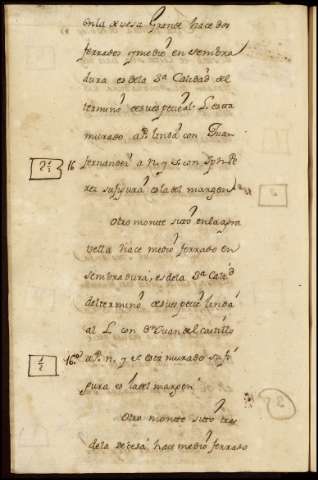 en la devesa Grande hace dos
ferrados y medio en sembra
dura es de la 3ª Calidad del
termino de su especie al L. esta
murado aP. linda con Juan
2½ 16 fernandez a N. y S. con Ph. Pe
rez su figura es la del margen
Otro monte sitto en la
vella hace medio ferrado en
sembradura, es de la 3ª Calid
del termino de su especie linda
al L. con Dn Juan del Castillo
½ 16 aP. N. y S. esta murado su fi
gura es la del margen
Otro monte sitto tras
de la devesa hace medio ferrado